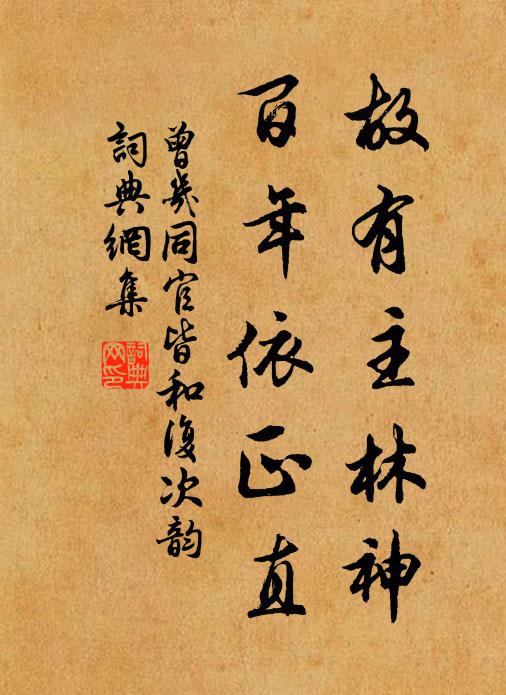 故有主林神
百年依正直
曾幾同官皆和復次韵
詞典網集
詞典網印